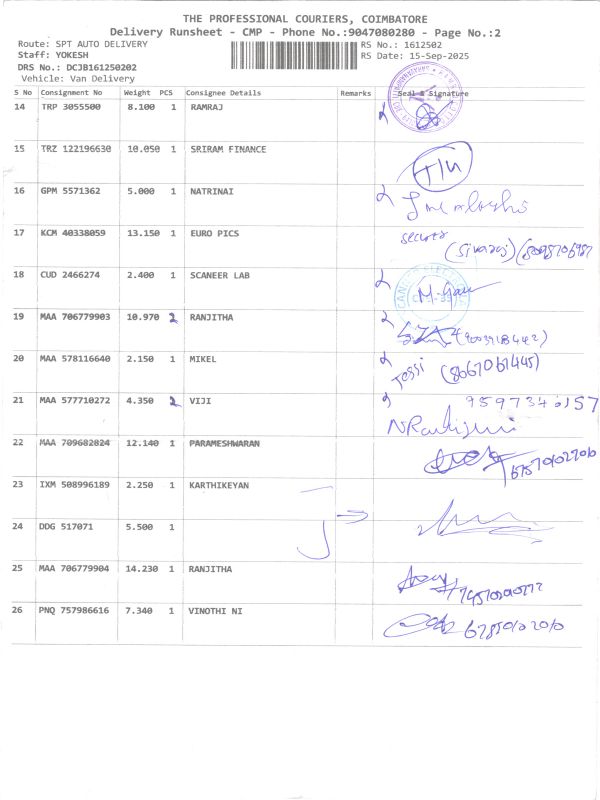 THE PROFESSIONAL COURIERS, COIMBATORE
Delivery Runsheet - CMP - Phone No.:9047080280 - Page No.:2
Route: SPT AUTO DELIVERY
RS No.: 1612502
Staff: YOKESH
RS Date: 15-Sep-2025
DRS No.: DCJB161250202
Vehicle: Van Delivery
S No Consignment No Weight PCS Consignee Details Remarks Seal & Signature
14 TRP 3055500 8.100 1 RAMRAJ
15 TRZ 122196630 10.050 1 SRIRAM FINANCE
16 GPM 5571362 5.000 1 NATRINAI
17 KCM 40338059 13.150 1 EURO PICS
18 CUD 2466274 2.400 1 SCANEER LAB
19 MAA 706779903 10.970 2 RANJITHA
20 MAA 578116640 2.150 1 MIKEL
Jessi (8667061445)
21 MAA 577710272 4.350 2 VIJI
22 MAA 709682824 12.140 1 PARAMESHWARAN
23 IXM 508996189 2.250 1 KARTHIKEYAN
24 DDG 517071 5.500 1
25 MAA 706779904 14.230 1 RANJITHA
26 PNQ 757986616 7.340 1 VINOTHI NI